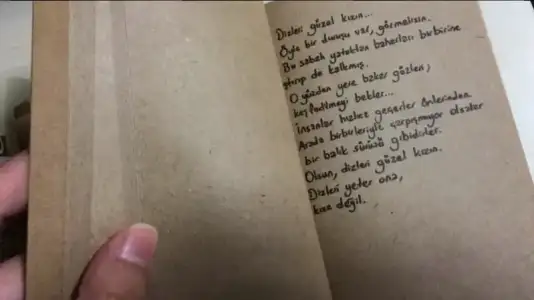 Dizleri güzel kızın...
Öyle bir duruşu var, görmelisin.
Bu sabah yataktan baharları birbirine
da kalkmış.
O yüzden yere bakar gözleri,
keşfedilmeyi bekler...
İnsanlar hızlıca geçerler önlerinden
Arada birbirleriyle çarpışmıyor olsalar
bir balık sürüsü gibidirler.
Olsun, dizleri güzel kızın.
Dizleri yeter ona,
kısa değil.